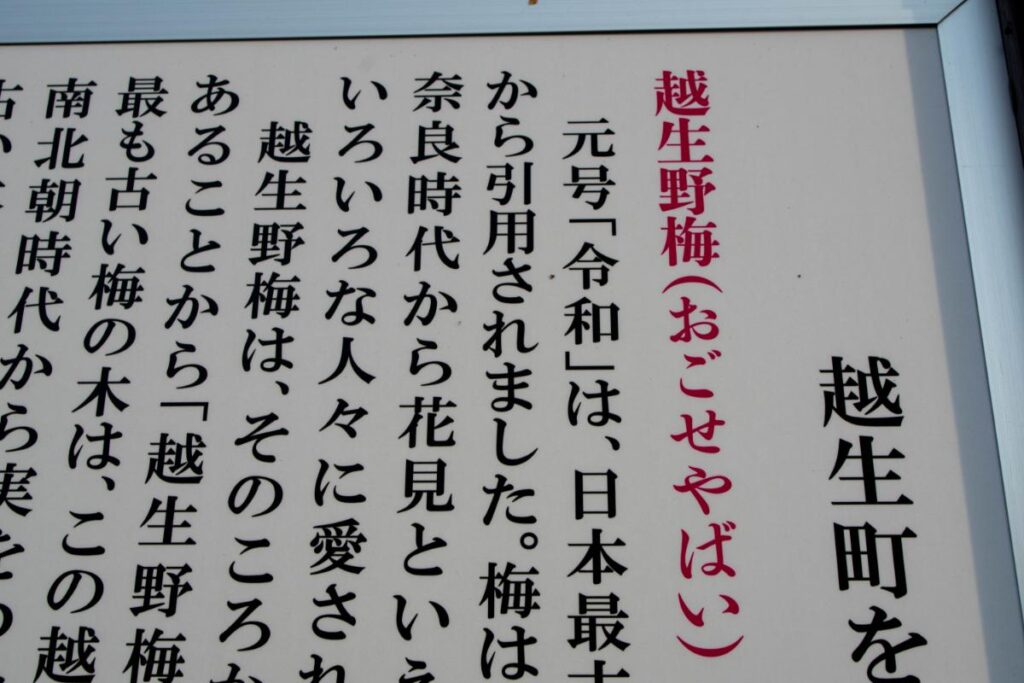 越生町を
越生野梅(おごせやばい)
元号「令和」は、日本最古
から引用されました。梅は
奈良時代から花見といえ
いろいろな人々に愛され
越生野梅は、そのころか
あることから「越生野梅
最も古い梅の木は、この越
南北朝時代から実を